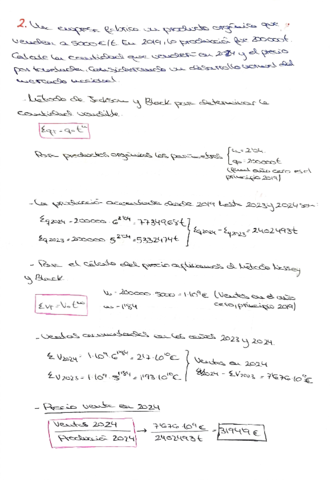 2. Una empresa fabrica un producto orgánico que
venden a 5000€/t. En 2019, la producción fue 200000t
Calcule las cantidades que venderán en 2024 y el precio
por tonelada. Considerando un desarrollo normal del
mercado nacional
- Método de Jackson y Black para determinar la
cantidad vendible
Σq = q·t^m
Para productos orgánicos los parámetros { m = 2'04
q = 200000t
(quant año cero es el
principio 2019)
- La producción acumulada desde 2019 hasta 2023 y 2024 son:
Σq2024 = 200000 · 6^2'04 = 7734965t
Σq2023 = 200000 · 5^2'04 = 5332474t } Σq2024 - Σq2023 = 2402493t
- Para el cálculo del precio aplicamos el Método
y Black
ΣV = V0·t^m
V0 = 200000 · 5000 = 1·10^9 € (Ventas en el año
cero, principio 2019)
m = 1'84
- Ventas acumuladas en los años 2023 y 2024.
ΣV2024 = 1·10^9 · 6^1'84 = 2'7·10^10 €
ΣV2023 = 1·10^9 · 5^1'84 = 1'93·10^10 € } Ventas en 2024
ΣV2024 - ΣV2023 = 7'676·10^9 €
- Precio venta en 2024
Ventas 2024 / Producción 2024 → 7'676·10^9 € / 2402493t = 3194'19 €